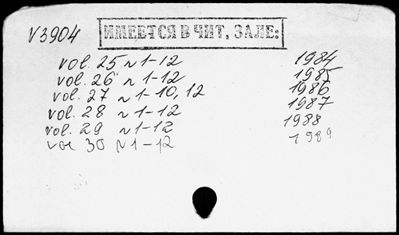 V3904
ИМЕЕТСЯ В ЧИТ, ЗАЛЕ:
vol. 25 N 1-12 1984
vol. 26 N 1-12 1985
vol. 27 N 1-10, 12 1986
vol. 28 N 1-12 1987
vol. 29 N 1-12 1988
vol 30 N 1-12 1989